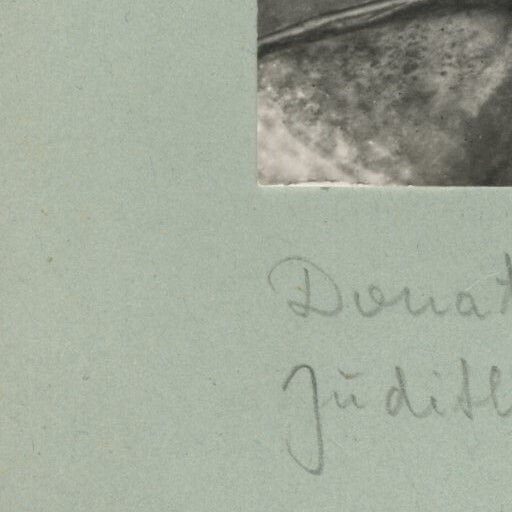 Donat
Judith